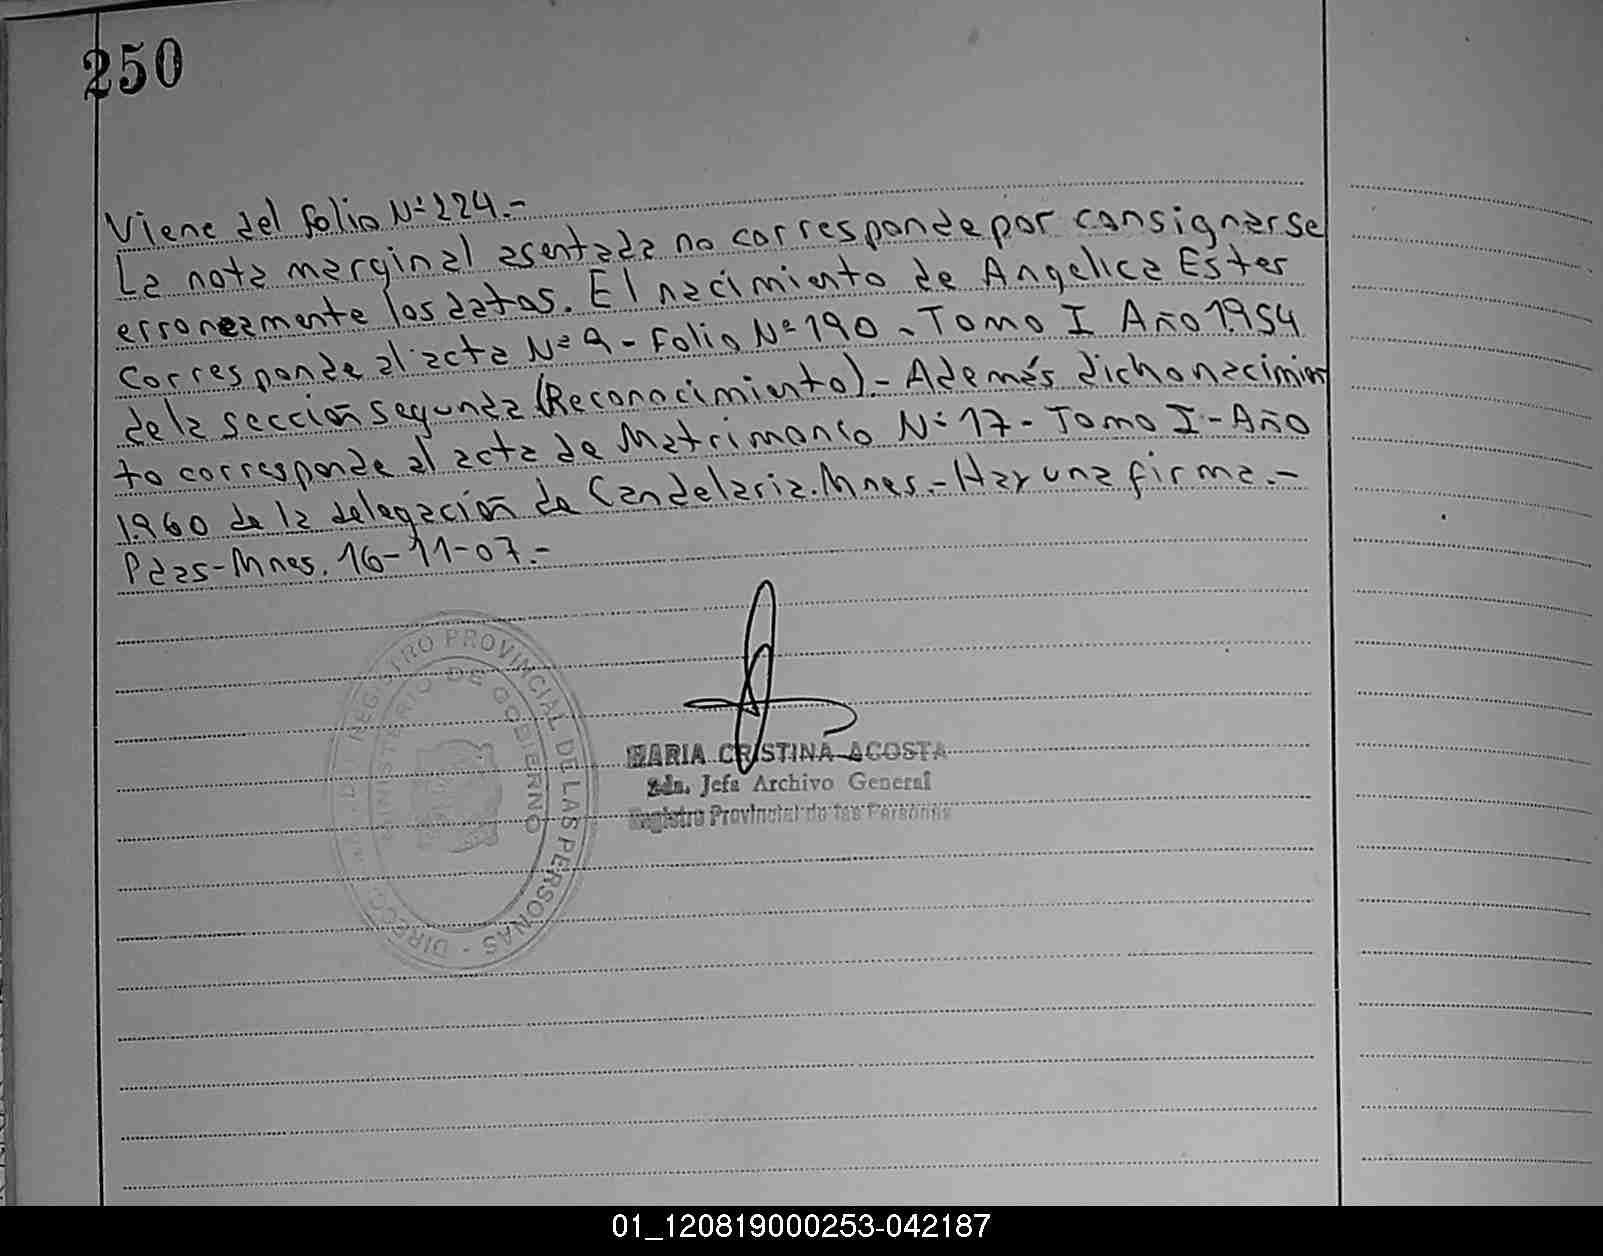 250
Viene del folio Nº 224.-
La nota marginal asentada no corresponde por consignarse
erroneamente los datos. El nacimiento de Angelica Ester
Corresponde al acta Nº 9 - Folio Nº 190 - Tomo I Año 1.954
de la sección segunda (Reconocimiento).- Además dicho nacimien
to corresponde al acta de Matrimonio Nº 17 - Tomo I - Año
1.960 de la delegación de Candelaria. Mnes.- Hay una firma.-
Pdas - Mnes. 16-11-07.-
REGISTRO PROVINCIAL DE LAS PERSONAS -
MINISTERIO DE GOBIERNO
MARIA CRISTINA ACOSTA
2da. Jefa Archivo General
Registro Provincial de las Personas
01_120819000253-042187